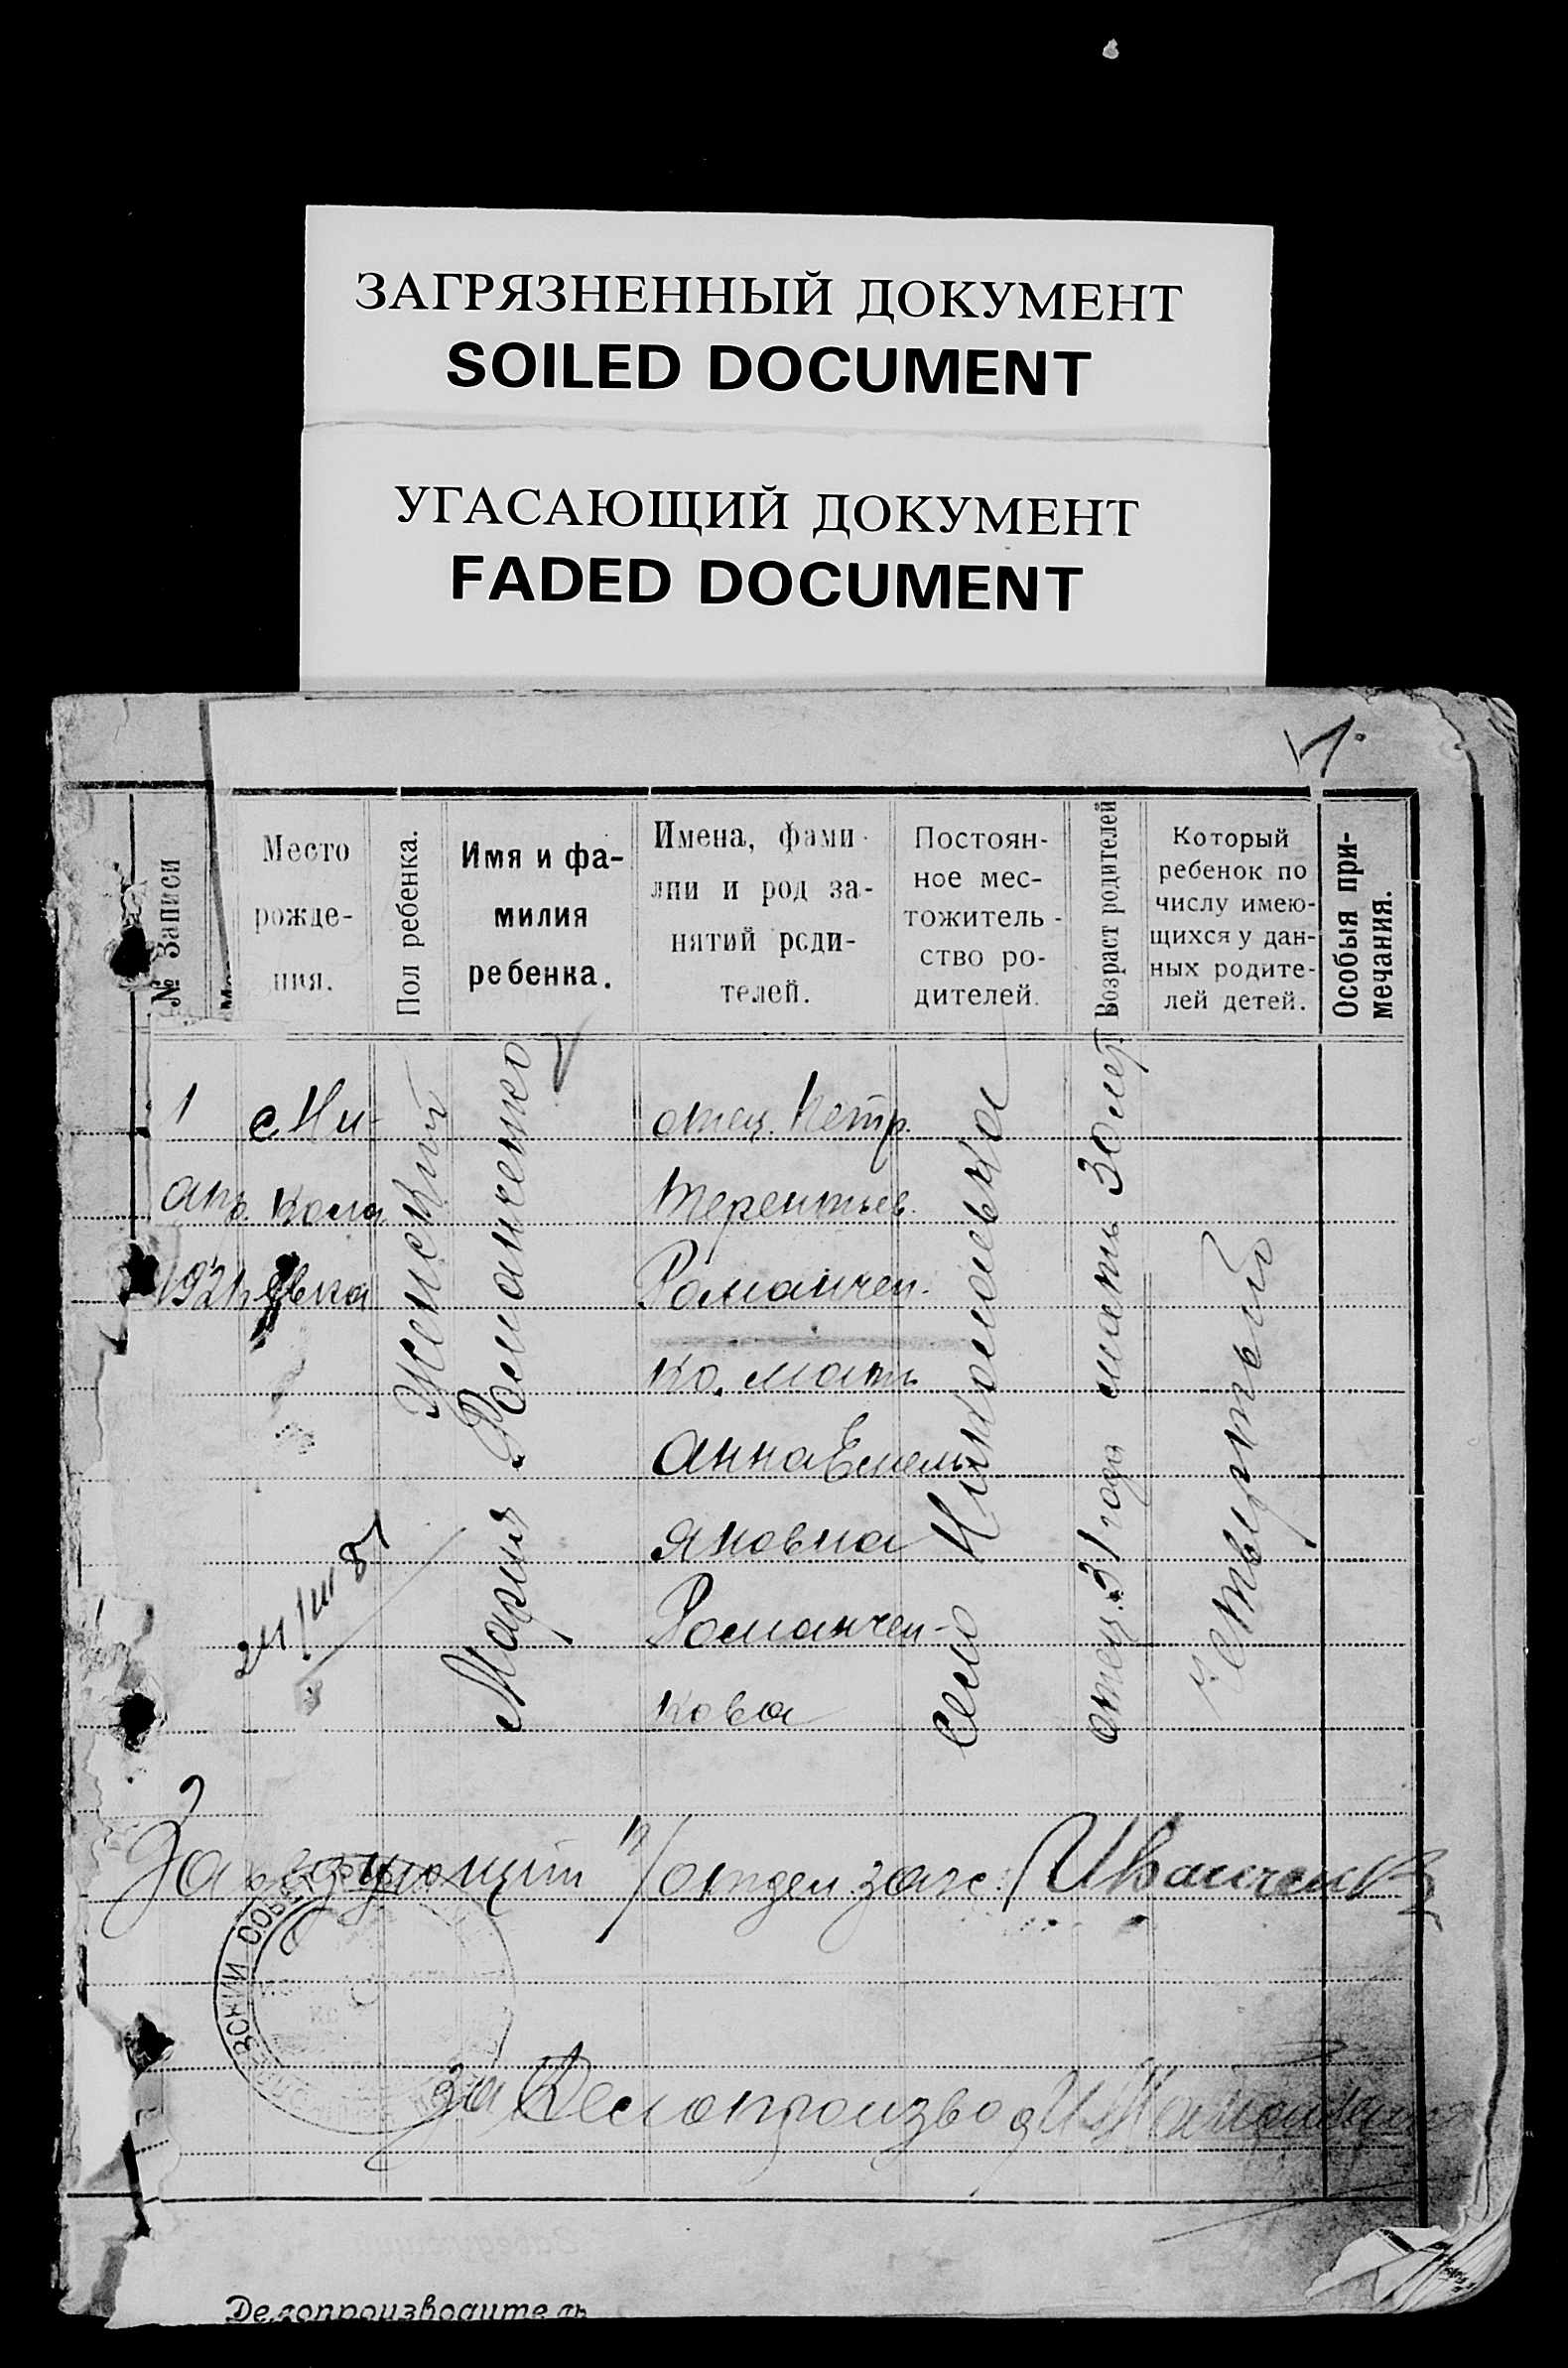 ЗАГРЯЗНЕННЫЙ ДОКУМЕНТ
SOILED DOCUMENT
УГАСАЮЩИЙ ДОКУМЕНТ
FADED DOCUMENT
1.
№ Записи
Место
рожде-
ния.
Пол ребенка.
Имя и фа-
милия
ребенка.
Имена, фами-
лии и род за-
нятий роди-
телей.
Постоян-
ное мес-
тожитель-
ство ро-
дителей.
Возраст родителей
Который
ребенок по
числу имею-
щихся у дан-
ных родите-
лей детей.
Особыя при-
мечания.
1
апр.
1921
с. Ни-
кола
евка
Женский
Мария Романченко
отец. Петр.
Терентьев.
Романчен-
ко. мать
Анна Емель
яновна
Романчен-
кова
село Николаевка
отец. 31 года мать 30 лет
четвертый
24/III 81
Заведующий п/отдел. загс. Иванченко
за Делопроизвод
Делопроизводитель